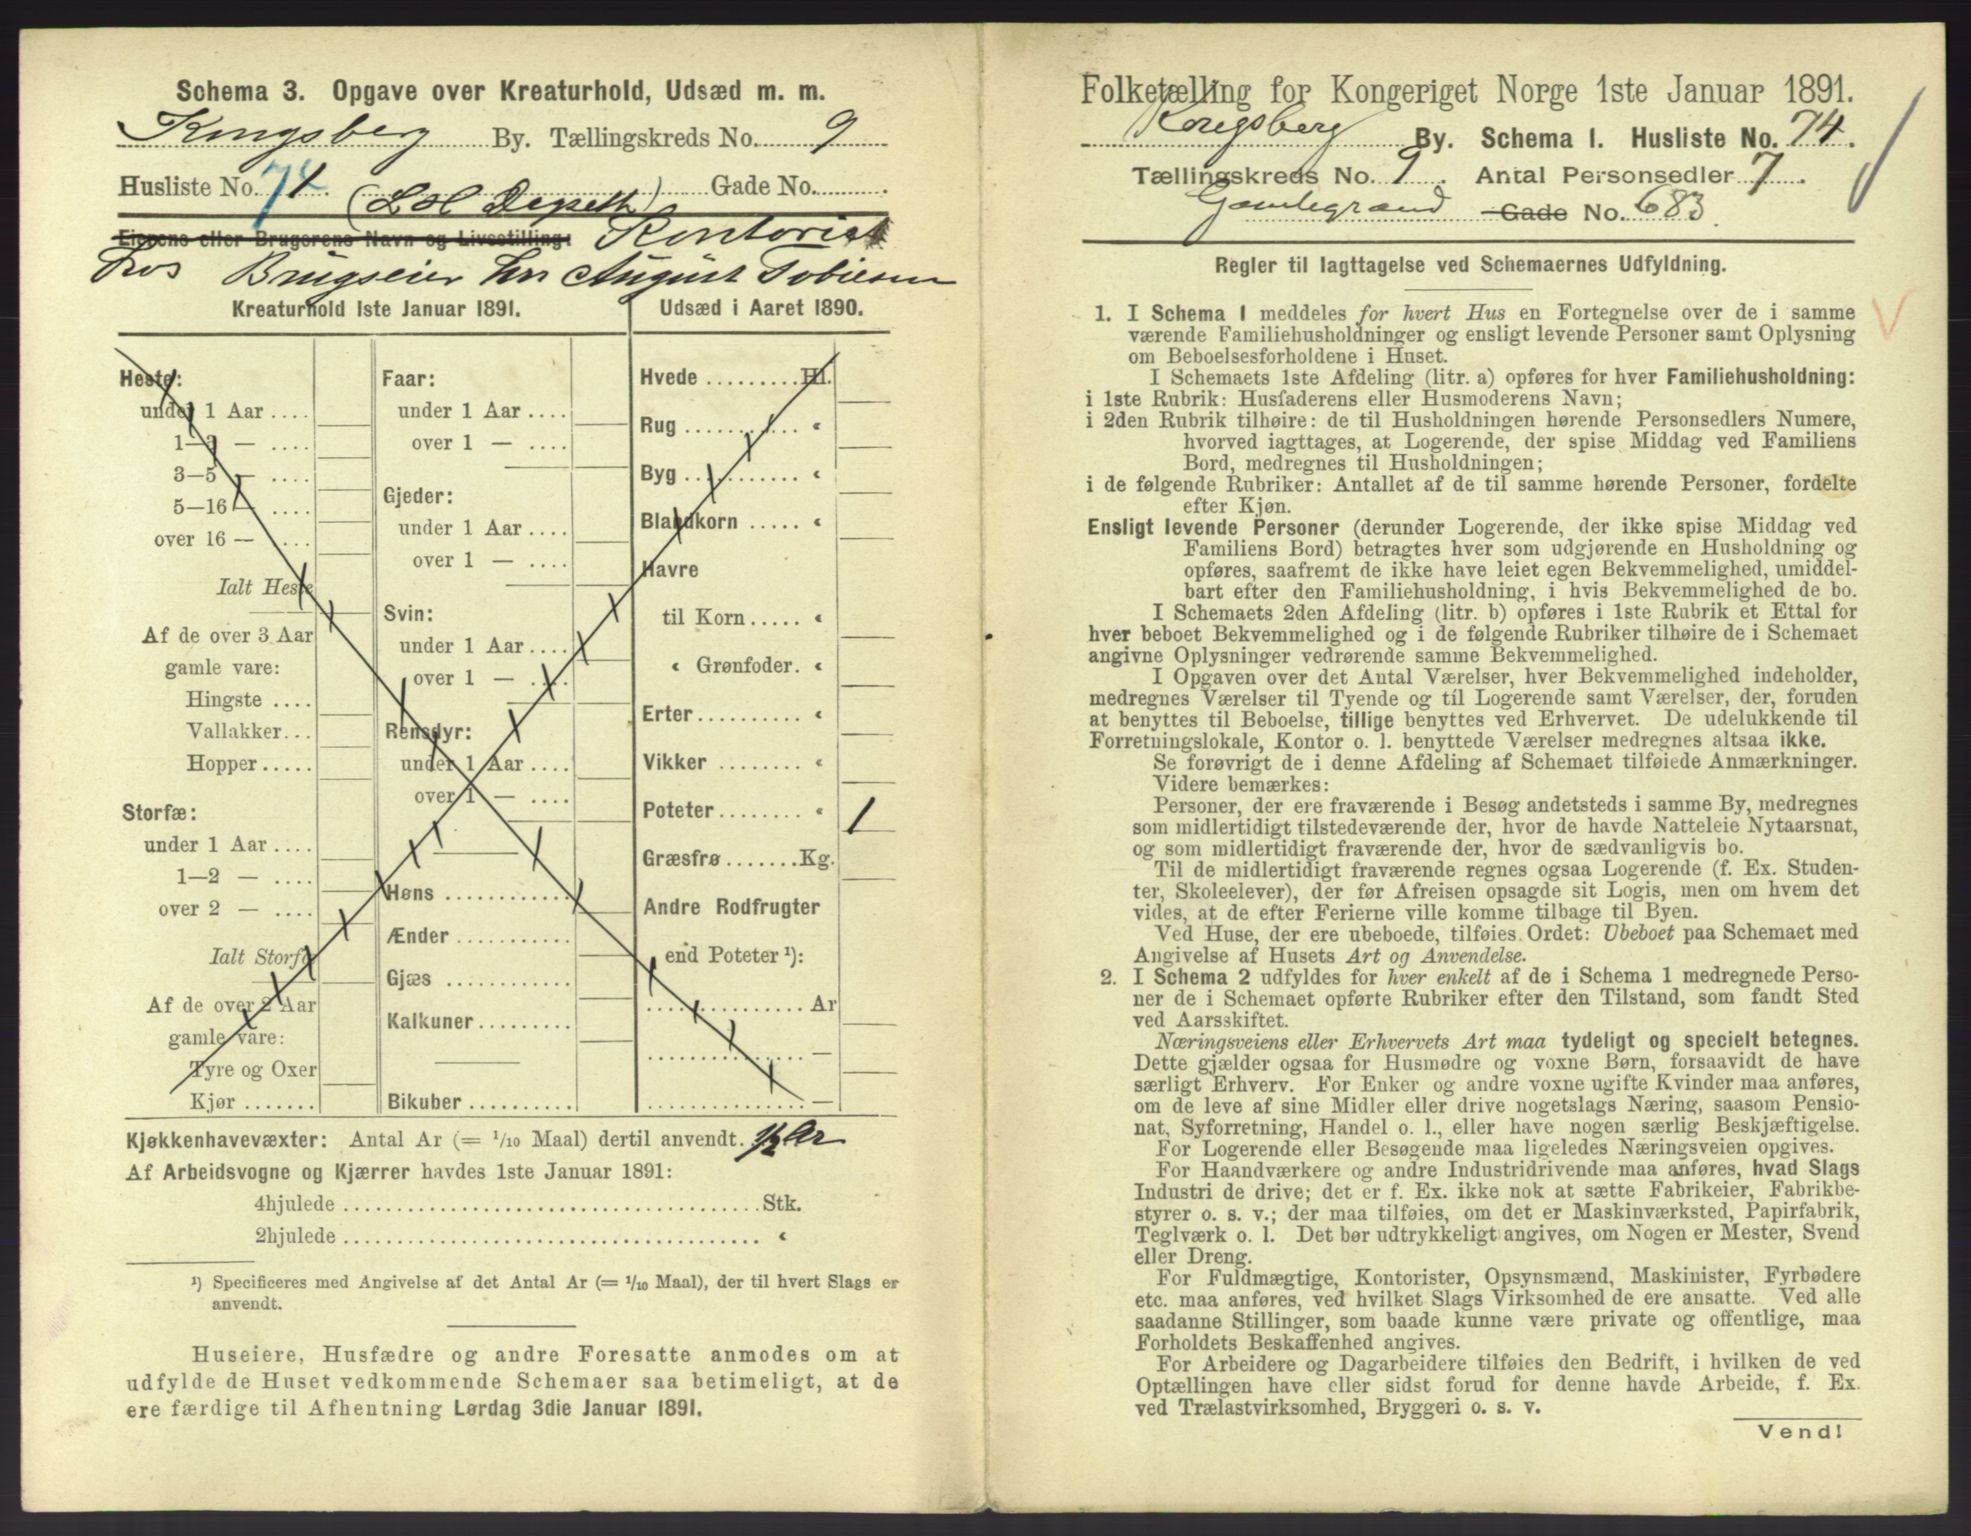 Schema 3. Opgave over Kreaturhold, Udsæd m. m.
Kongsberg By. Tællingskreds No. 9
Husliste No. 74 (L.H. ) Gade No.
Eierens eller Brugerens Navn og Livsstilling: Kontorist
hos Brugseier hrr August Tobiesen
Kreaturhold 1ste Januar 1891.
Heste:
under 1 Aar ....
1—3 — ....
3—5 — ....
5—16 — ....
over 16 — ....
Ialt Heste
Af de over 3 Aar
gamle vare:
Hingste ....
Vallakker...
Hopper.....
Storfæ:
under 1 Aar ....
1—2 — ....
over 2 — ....
Ialt Storfæ
Af de over 2 Aar
gamle vare:
Tyre og Oxer
Kjør .......
Faar:
under 1 Aar ....
over 1 — ....
Gjeder:
under 1 Aar ....
over 1 — ....
Svin:
under 1 Aar ....
over 1 — ....
Rensdyr:
under 1 Aar ....
over 1 — ....
Høns ............
Ænder ...........
Gjæs ............
Kalkuner.........
Bikuber ..........
Udsæd i Aaret 1890.
Hvede ......... Hl.
Rug ........... «
Byg ........... «
Blandkorn ..... «
Havre
til Korn ..... «
« Grønfoder. «
Erter.......... «
Vikker ........ «
Poteter........ « 1
Græsfrø .......Kg.
Andre Rodfrugter
end Poteter ¹):
............... Ar
............... —
............... —
Kjøkkenhavevæxter: Antal Ar (= 1/10 Maal) dertil anvendt. 1/2 Ar
Af Arbeidsvogne og Kjærrer havdes 1ste Januar 1891:
4hjulede ....................................... Stk.
2hjulede ....................................... «
¹) Specificeres med Angivelse af det Antal Ar (= 1/10 Maal), der til hvert Slags er
anvendt.
Huseiere, Husfædre og andre Foresatte anmodes om at
udfylde de Huset vedkommende Schemaer saa betimeligt, at de
ere færdige til Afhentning Lørdag 3die Januar 1891.
Folketælling for Kongeriget Norge 1ste Januar 1891.
Kongsberg By. Schema 1. Husliste No. 74.
Tællingskreds No. 9. Antal Personsedler 7.
Gamlegrænd Gade No. 683.
Regler til Iagttagelse ved Schemaernes Udfyldning.
1. I Schema 1 meddeles for hvert Hus en Fortegnelse over de i samme
værende Familiehusholdninger og ensligt levende Personer samt Oplysning
om Beboelsesforholdene i Huset.
I Schemaets 1ste Afdeling (litr. a) opføres for hver Familiehusholdning:
i 1ste Rubrik: Husfaderens eller Husmoderens Navn;
i 2den Rubrik tilhøire: de til Husholdningen hørende Personsedlers Numere,
hvorved iagttages, at Logerende, der spise Middag ved Familiens
Bord, medregnes til Husholdningen;
i de følgende Rubriker: Antallet af de til samme hørende Personer, fordelte
efter Kjøn.
Ensligt levende Personer (derunder Logerende, der ikke spise Middag ved
Familiens Bord) betragtes hver som udgjørende en Husholdning og
opføres, saafremt de ikke have leiet egen Bekvemmelighed, umiddel-
bart efter den Familiehusholdning, i hvis Bekvemmelighed de bo.
I Schemaets 2den Afdeling (litr. b) opføres i 1ste Rubrik et Ettal for
hver beboet Bekvemmelighed og i de følgende Rubriker tilhøire de i Schemaet
angivne Oplysninger vedrørende samme Bekvemmelighed.
I Opgaven over det Antal Værelser, hver Bekvemmelighed indeholder,
medregnes Værelser til Tyende og til Logerende samt Værelser, der, foruden
at benyttes til Beboelse, tillige benyttes ved Erhvervet. De udelukkende til
Forretningslokale, Kontor o. l. benyttede Værelser medregnes altsaa ikke.
Se forøvrigt de i denne Afdeling af Schemaet tilføiede Anmærkninger.
Videre bemærkes:
Personer, der ere fraværende i Besøg andetsteds i samme By, medregnes
som midlertidigt tilstedeværende der, hvor de havde Natteleie Nytaarsnat,
og som midlertidigt fraværende der, hvor de sædvanligvis bo.
Til de midlertidigt fraværende regnes ogsaa Logerende (f. Ex. Studen-
ter, Skoleelever), der før Afreisen opsagde sit Logis, men om hvem det
vides, at de efter Ferierne ville komme tilbage til Byen.
Ved Huse, der ere ubeboede, tilføies Ordet: Ubeboet paa Schemaet med
Angivelse af Husets Art og Anvendelse.
2. I Schema 2 udfyldes for hver enkelt af de i Schema 1 medregnede Perso-
ner de i Schemaet opførte Rubriker efter den Tilstand, som fandt Sted
ved Aarsskiftet.
Næringsveiens eller Erhvervets Art maa tydeligt og specielt betegnes.
Dette gjælder ogsaa for Husmødre og voxne Børn, forsaavidt de have
særligt Erhverv. For Enker og andre voxne ugifte Kvinder maa anføres,
om de leve af sine Midler eller drive nogetslags Næring, saasom Pensio-
nat, Syforretning, Handel o. l., eller have nogen særlig Beskjæftigelse.
For Logerende eller Besøgende maa ligeledes Næringsveien opgives.
For Haandværkere og andre Industridrivende maa anføres, hvad Slags
Industri de drive; det er f. Ex. ikke nok at sætte Fabrikeier, Fabrikbe-
styrer o. s. v.; der maa tilføies, om det er Maskinværksted, Papirfabrik,
Teglværk o. l. Det bør udtrykkeligt angives, om Nogen er Mester, Svend
eller Dreng.
For Fuldmægtige, Kontorister, Opsynsmænd, Maskinister, Fyrbødere
etc. maa anføres, ved hvilket Slags Virksomhed de ere ansatte. Ved alle
saadanne Stillinger, som baade kunne være private og offentlige, maa
Forholdets Beskaffenhed angives.
For Arbeidere og Dagarbeidere tilføies den Bedrift, i hvilken de ved
Optællingen have eller sidst forud for denne havde Arbeide, f. Ex.
ved Trælastvirksomhed, Bryggeri o. s. v.
Vend!